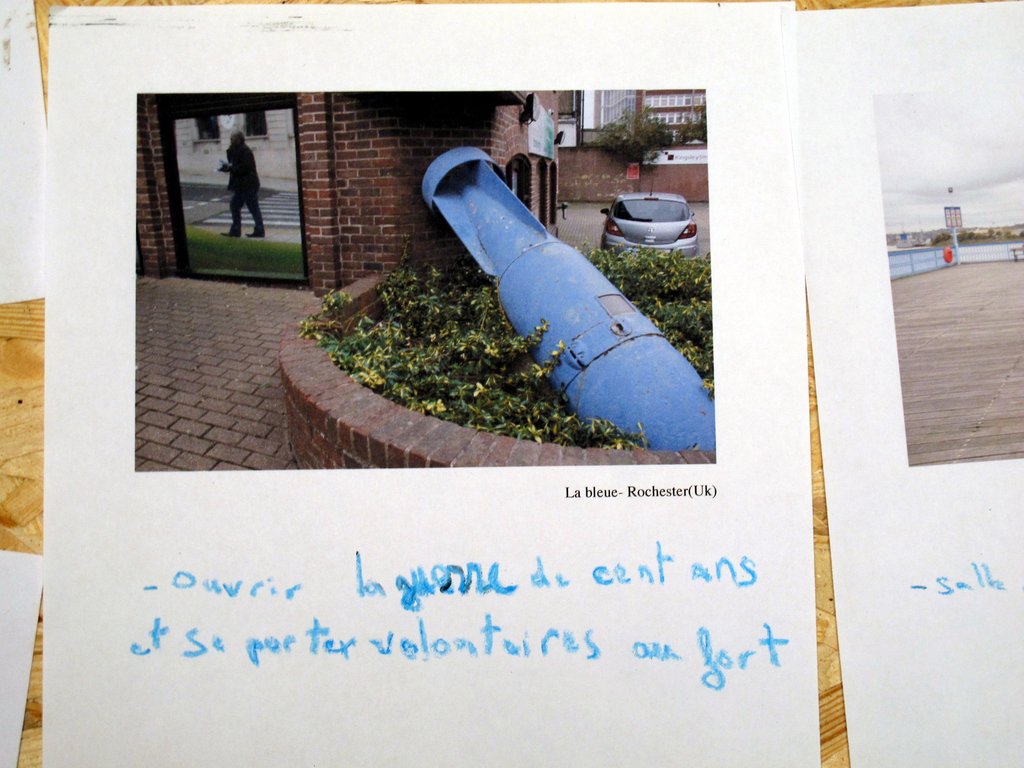 Kingsley Sm
La bleue- Rochester(Uk)
- ouvrir la guerre de cent ans
et se porter volontaires au fort
- salle